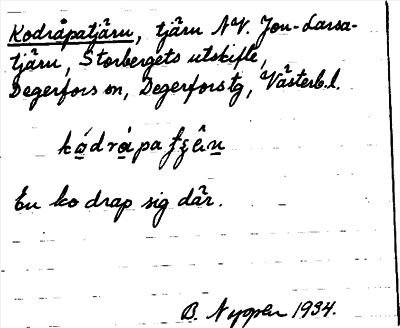 Kodråpatjärn, tjärn NV. Jon-Larsa-
tjärn, Storbergets utskifte,
Degerfors sn, Degerfors tg, Västerb.l.
En ko drap sig där.
B. Nyppen 1934.